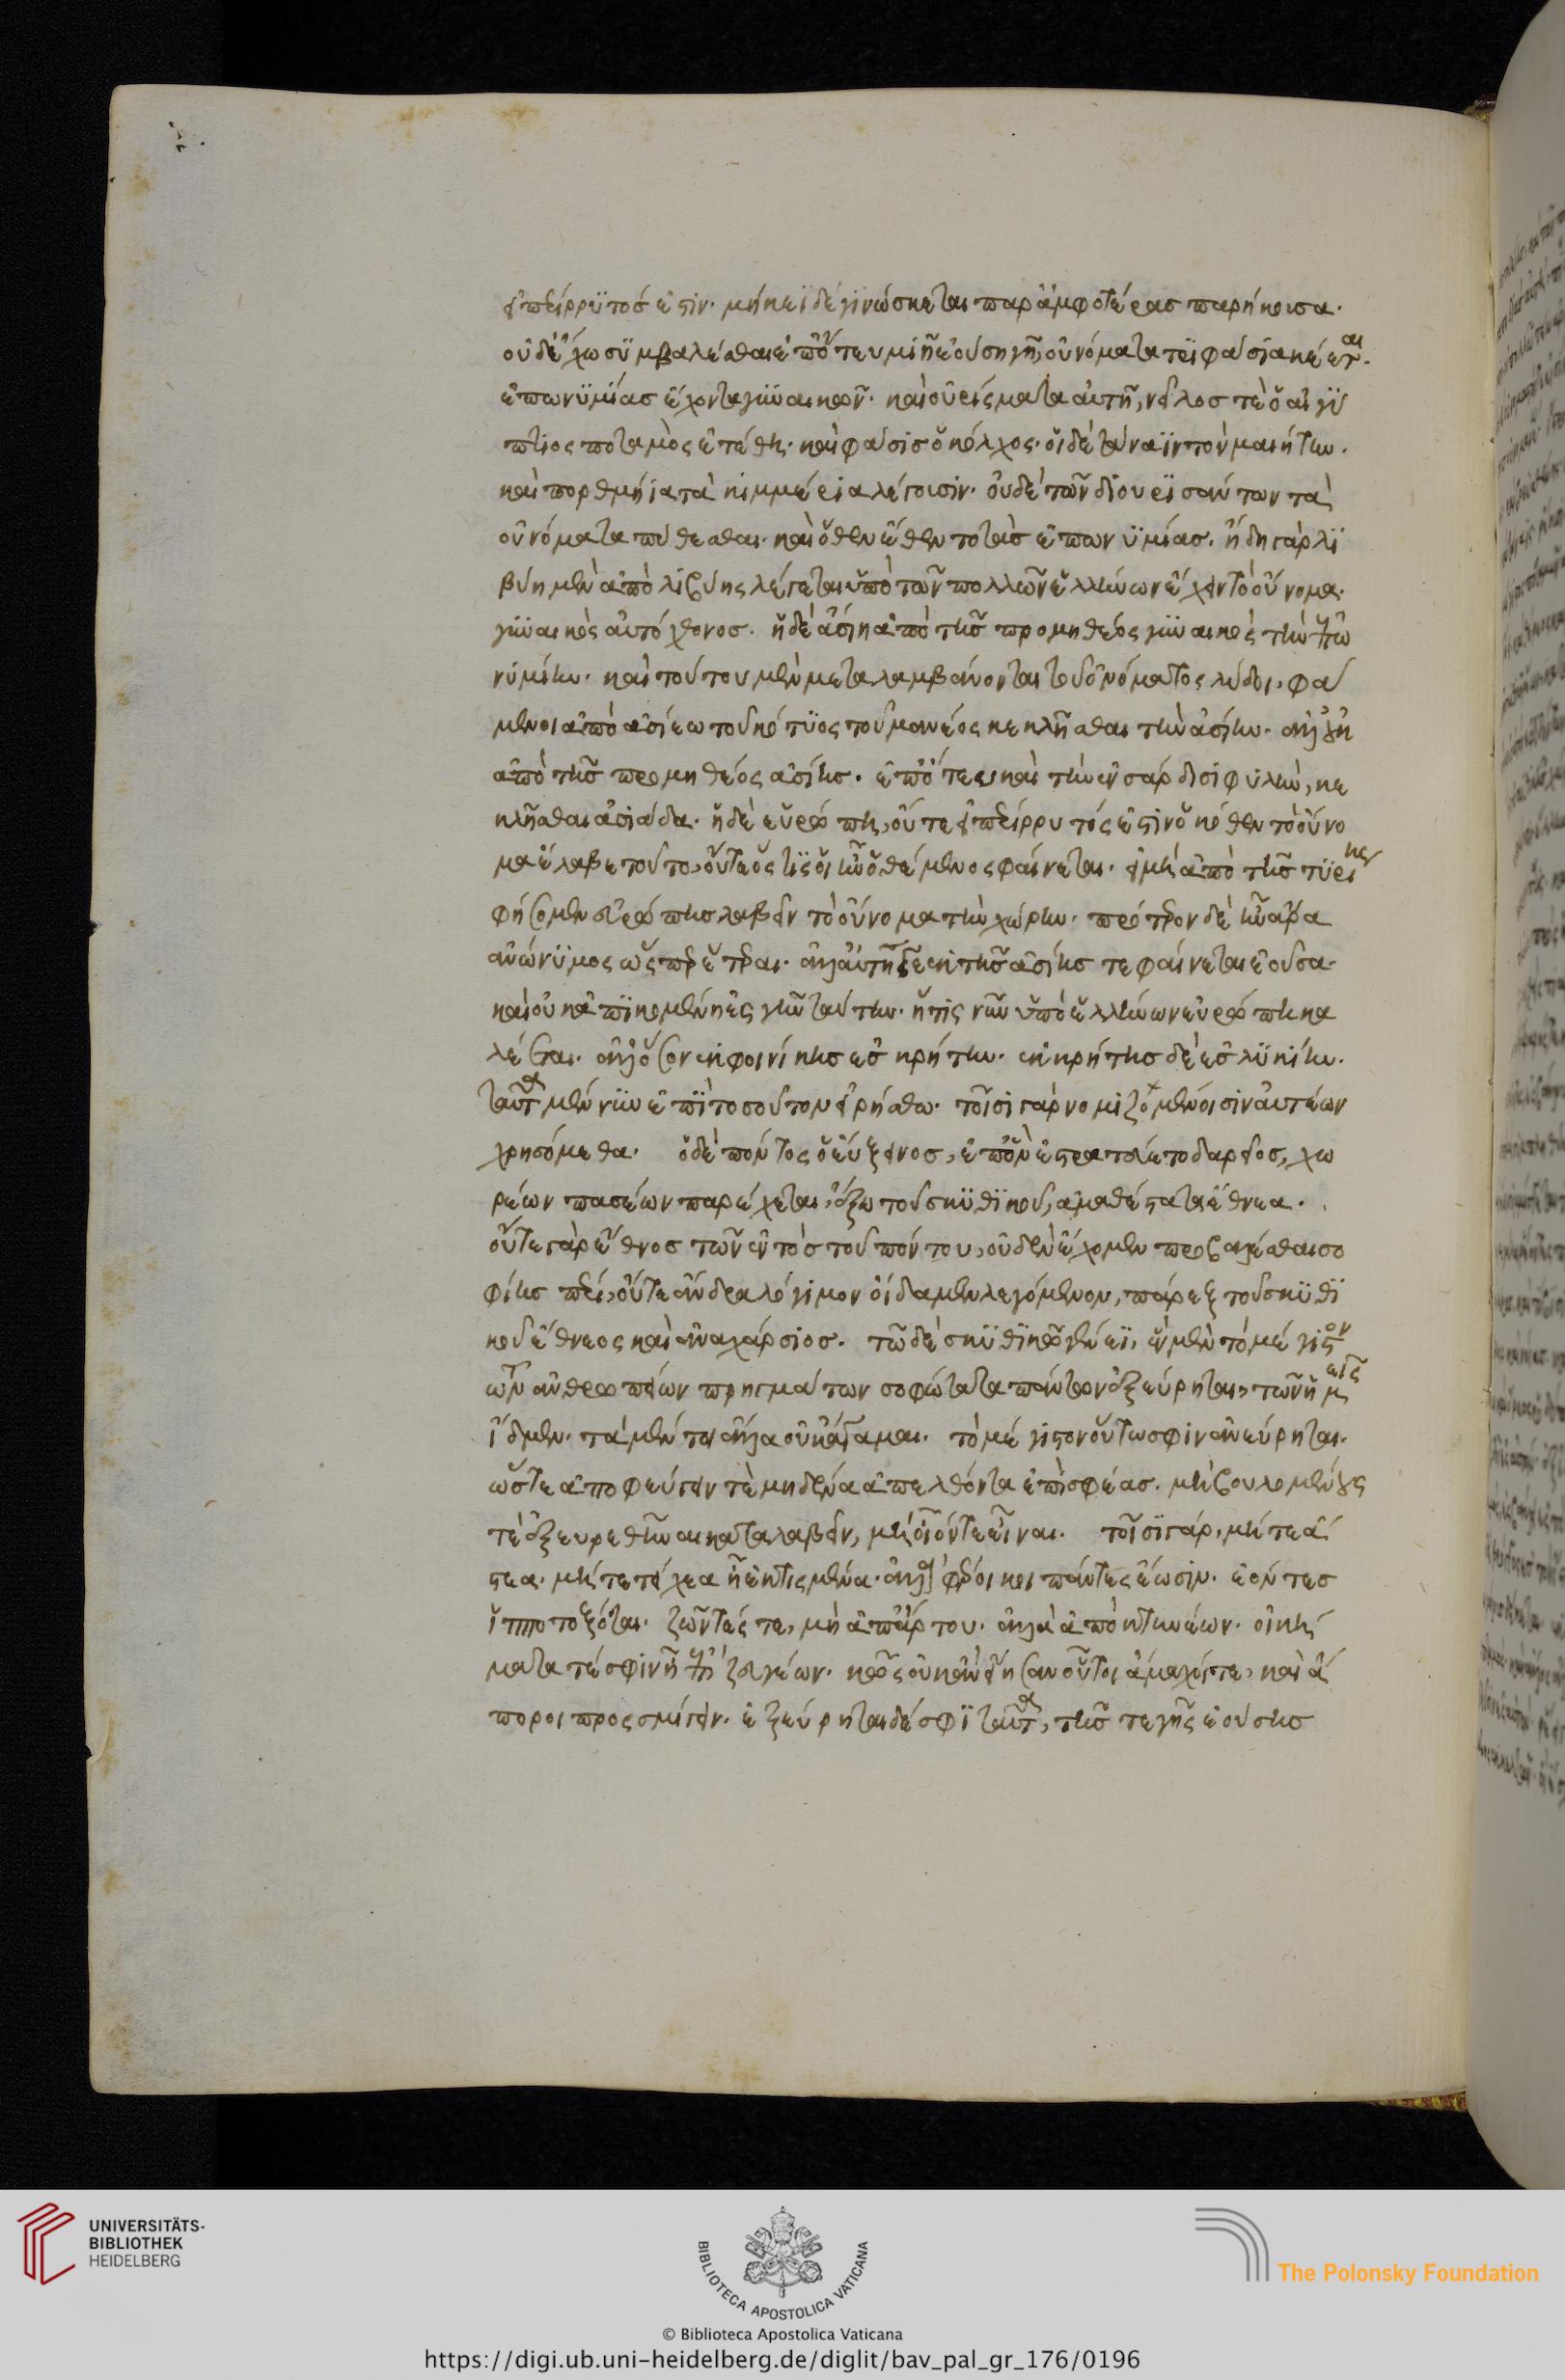 εἰ περίρρυτός ἐστιν· μήκεϊ δὲ γινώσκεται παρ' ἀμφοτέρας παρήκουσα.
οὐδὲ ἔχω συμβαλέσθαι ἐπ' ὅτευ μιῆ ἐούση γῆ, οὐνόματα τριφάσια κέεται.
ἐπωνυμίας ἔχοντα γυναικῶν. καὶ οὐρίσματα αὐτῆ, νεῖλος τὲ ὁ αἰγύ
πτιος ποταμὸς ἐτέθη· καὶ φᾶσις ὁ κόλχος. οἱ δὲ τάναϊν τὸν μαιήτην.
καὶ πορθμήϊα τὰ κιμμέρια λέγουσιν. οὐδὲ τῶν διουρισάντων τὰ
οὐνόματα πυθέσθαι. καὶ ὅθεν ἔθεντο τὰς ἐπωνυμίας. ἤδη γὰρ λι
βύη μὲν ἀπὸ λιβύης λέγεται ὑπὸ τῶν πολλῶν ἑλλήνων ἔχειν τὸ οὔνομα.
γυναικὸς αὐτόχθονος. ἡ δὲ ἀσίη ἀπὸ τῆς προμηθέος γυναικὸς τὴν ἐπω
νυμίην. καὶ τούτου μὲν μεταλαμβάνονται τοῦ ὀνόματος λυδοί, φά
μενοι ἀπὸ ἀσίεω τοῦ κότυος τοῦ μανέος κεκλῆσθαι τὴν ἀσίην. ἀλλ' οὐκ
ἀπὸ τῆς προμηθέος ἀσίης. ἐπ' ὅτευ καὶ τὴν ἐν σάρδισι φυλὴν, κε
κλῆσθαι ἀσιάδα. ἡ δὲ εὐρώπη, οὔτε εἰ περίρρυτός ἐστιν οὐκόθεν τὸ οὔνο
μα ἔλαβε τοῦτο, οὔτε ὅστις οἱ ἦν ὁ θέμενος φαίνεται. εἰ μὴ ἀπὸ τῆς τυρίης
φήσομεν εὐρώπης λαβεῖν τὸ οὔνομα τὴν χώρην. πρότερον δὲ ἦν ἄρα
ἀνώνυμος ὥσπερ ἕτεραι. ἀλλ' αὐτή γε ἐκ τῆς ἀσίης τε φαίνεται ἐοῦσα.
καὶ οὐκ ἀπικομένη ἐς γῆν ταύτην. ἥτις νῦν ὑπὸ ἑλλήνων εὐρώπη κα
λέεται. ἀλλ' ὅσον ἐκ φοινίκης ἐς κρήτην. ἐκ κρήτης δὲ ἐς λυκίην.
ταῦτα μέν νυν ἐπὶ τοσοῦτον εἰρήσθω. τοῖσι γὰρ νομιζομένοισιν αὐτέων
χρησόμεθα. ὁ δὲ πόντος ὁ εὔξεινος, ἐπ' ὃν ἐστρατεύετο δαρεῖος, χω
ρέων πασέων παρέχεται, ἔξω τοῦ σκυθικοῦ, ἀμαθέστατα ἔθνεα.
οὔτε γὰρ ἔθνος τῶν ἐντὸς τοῦ πόντου, οὐδὲν ἔχομεν προβαλέσθαι σο
φίης πέρι, οὔτε ἄνδρα λόγιμον οἴδαμεν λεγόμενον, πάρεξ τοῦ σκυθι
κοῦ ἔθνεος καὶ ἀναχάρσιος. τῶ δὲ σκυθικῶ γένεϊ, ἓν μὲν τὸ μέγιστον
τῶν ἀνθρωπείων πρηγμάτων σοφώτατα πάντων ἐξεύρηται, τῶν ἡμεῖς
ἴδμεν. τὰ μέντοι ἄλλα οὐκ ἄγαμαι. τὸ μέγιστον οὕτω σφιν ἀνεύρηται.
ὥστε ἀποφεύγειν τὲ μηδένα ἀπελθόντα ἐπὶ σφέας. μὴ βουλομένους
τὲ ἐξευρεθῆναι καταλαβεῖν, μὴ οἷόν τε εἶναι. τοῖσι γὰρ, μήτε ἄ
στεα. μήτε τείχεα ἦ ἐκτισμένα. ἀλλὰ φερέοικοι πάντες ἐῶσιν. ἐόντες
ἱπποτοξόται. ζῶντές τε, μὴ ἀπ' ἀρότου. ἀλλὰ ἀπὸ κτηνέων. οἰκή
ματα τέ σφιν ἦ ἐπὶ ζευγέων. κῶς οὐκ ἂν εἴησαν οὗτοι ἄμαχοί τε, καὶ ἄ
ποροι προσμίγειν. ἐξεύρηται δέ σφι ταῦτα, τῆς τε γῆς ἐούσης
UNIVERSITÄTS-
BIBLIOTHEK
HEIDELBERG
BIBLIOTECA APOSTOLICA VATICANA
The Polonsky Foundation
© Biblioteca Apostolica Vaticana
https://digi.ub.uni-heidelberg.de/diglit/bav_pal_gr_176/0196